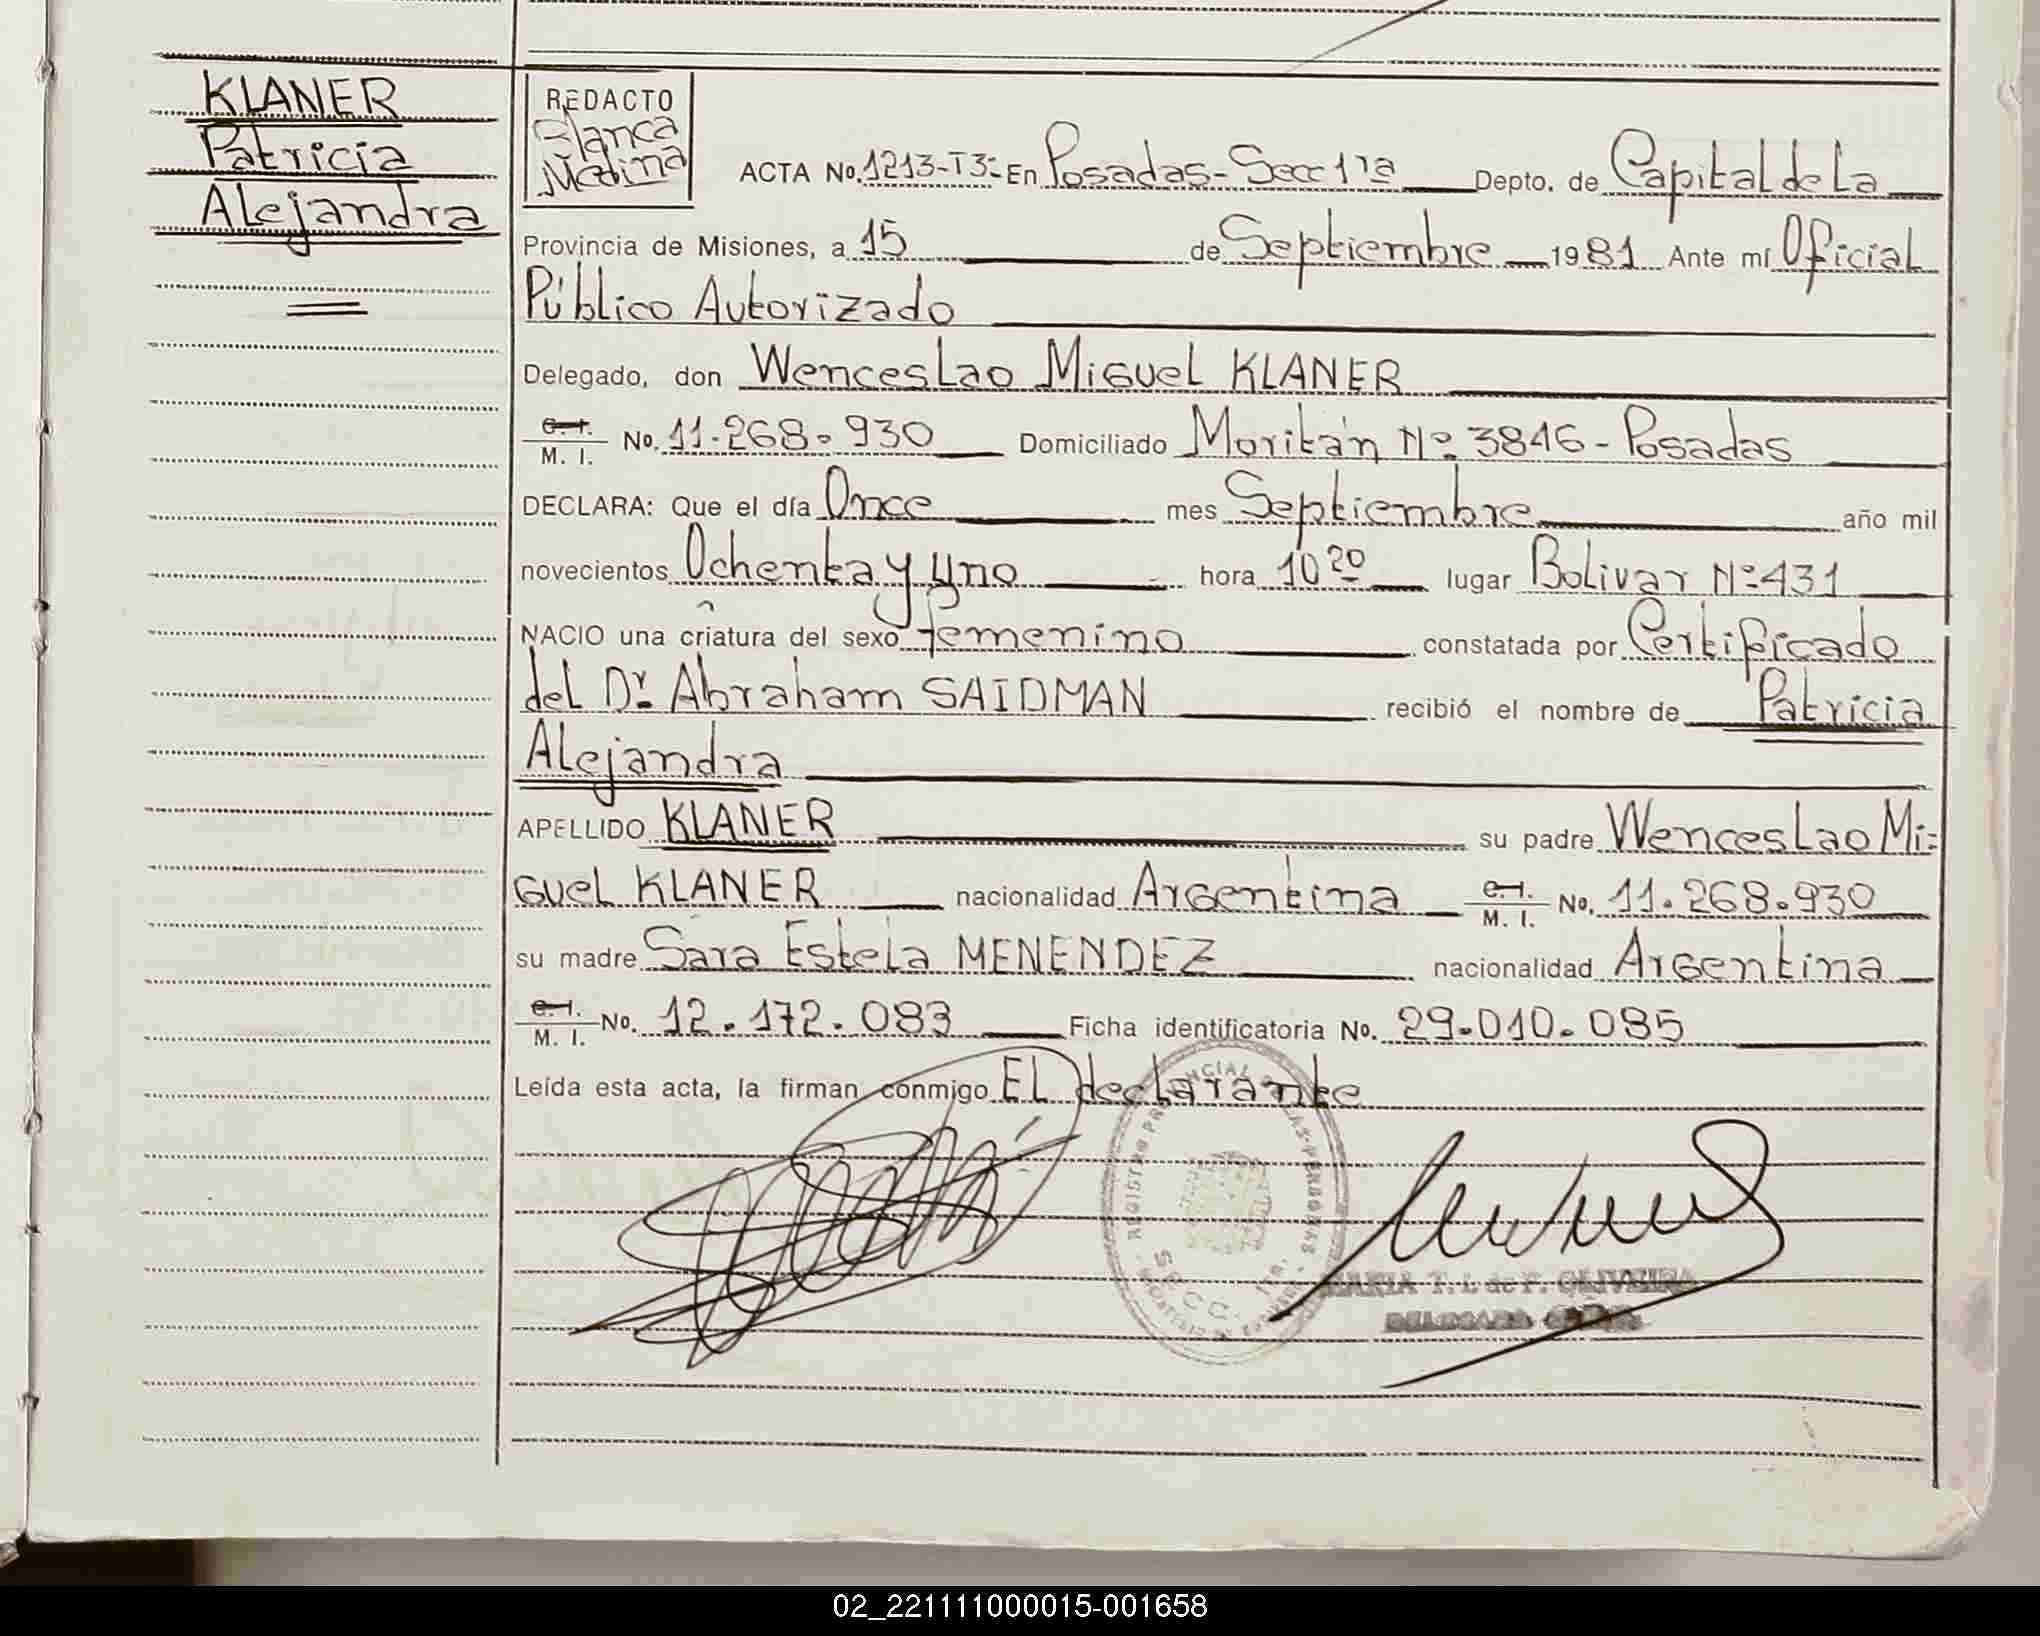 KLANER
Patricia
Alejandra
REDACTO
Blanca
Medina
ACTA No. 1213-T3- En Posadas - Secc 1ra Depto. de Capital de La
Provincia de Misiones, a 15 de Septiembre 1981 Ante mí Oficial
Público Autorizado
Delegado, don Wenceslao Miguel KLANER
C. I. / M. I. No. 11.268.930 Domiciliado Moritán Nº 3846 - Posadas
DECLARA: Que el día Once mes Septiembre año mil
novecientos Ochenta y Uno hora 10 20 lugar Bolivar Nº 431
NACIO una criatura del sexo femenino constatada por Certificado
del Dr. Abraham SAIDMAN recibió el nombre de Patricia
Alejandra
APELLIDO KLANER su padre Wenceslao Mi=
guel KLANER nacionalidad Argentina C. I. / M. I. No. 11.268.930
su madre Sara Estela MENENDEZ nacionalidad Argentina
C. I. / M. I. No. 12.172.083 Ficha identificatoria No. 29.010.085
Leída esta acta, la firman conmigo El declarante
SECC. 1RA.
MARIA T. L. de F. OLIVEIRA
02_221111000015-001658